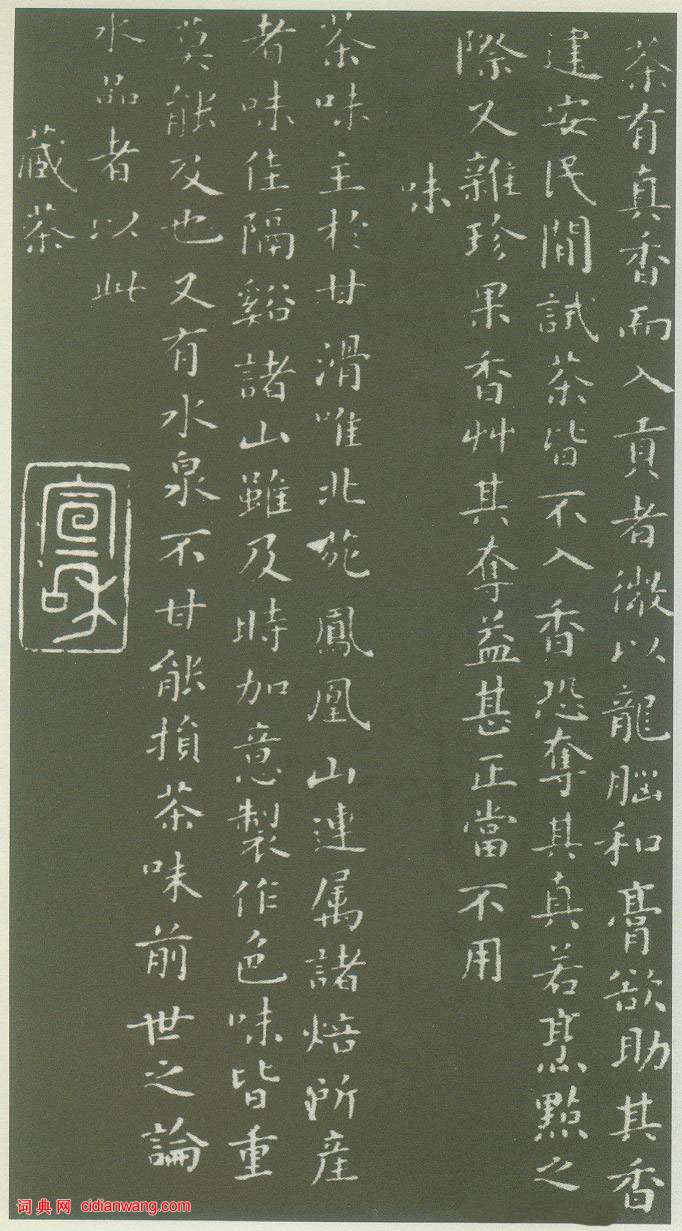 茶有真香而入貢者微以龍腦和膏欲助其香
建安民間試茶皆不入香恐奪其真若烹點之
際又雜珍果香艸其奪益甚正當不用
味
茶味主於甘滑唯北苑鳳凰山連属諸焙所産
者味佳隔谿諸山雖及時加意製作色味皆重
莫能及也又有水泉不甘能損茶味前世之論
水品者以此
藏茶
宣和
词典网 cidianwang.com